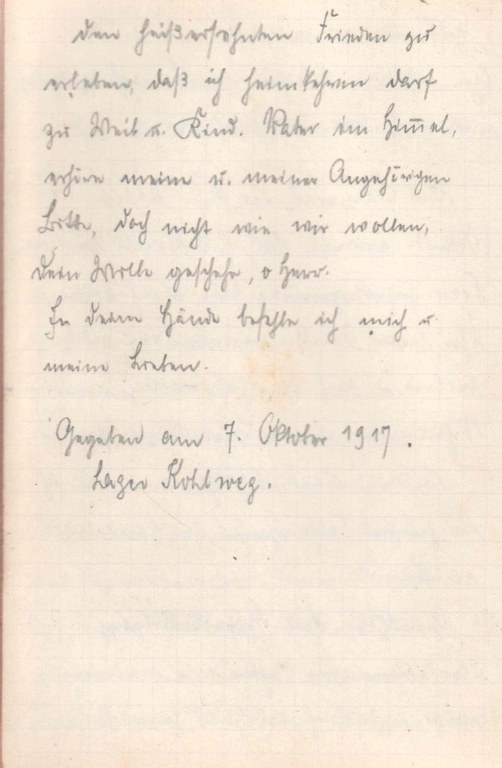 den heißersehnten Frieden zu
erleben, daß ich heimkehren darf
zu Weib u. Kind. Vater im Himmel,
erhöre meine u. meiner Angehörigen
Bitte, doch nicht wie wir wollen,
Dein Wille geschehe, o Herr.
In deine Hände befehle ich mich u.
meine Lieben.
Gegeben am 7. Oktober 1917.
Lager Kohlweg.